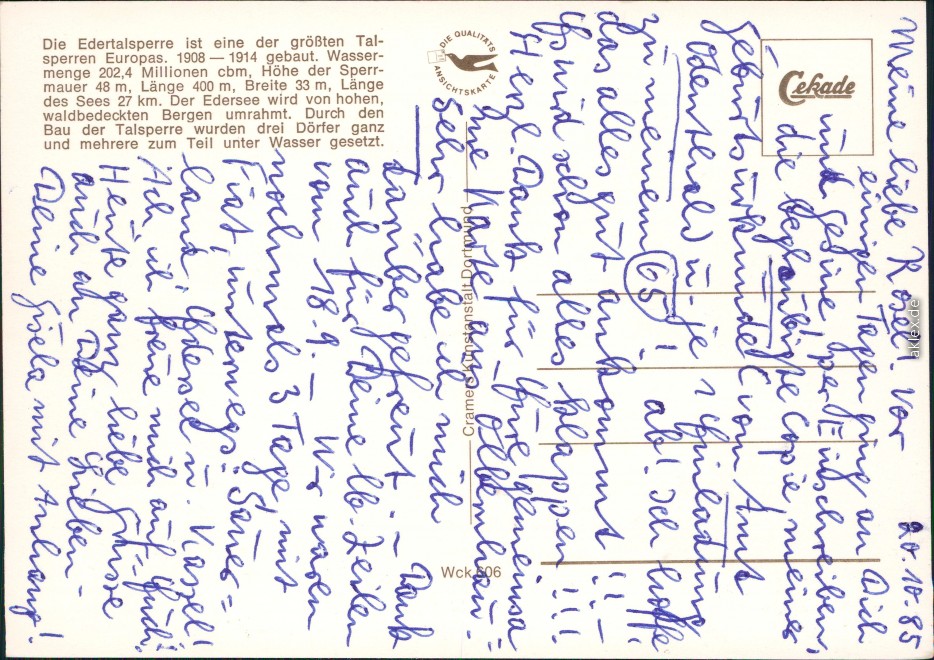 Die Edertalsperre ist eine der größten Tal-
sperren Europas. 1908 — 1914 gebaut. Wasser-
menge 202,4 Millionen cbm, Höhe der Sperr-
mauer 48 m, Länge 400 m, Breite 33 m, Länge
des Sees 27 km. Der Edersee wird von hohen,
waldbedeckten Bergen umrahmt. Durch den
Bau der Talsperre wurden drei Dörfer ganz
und mehrere zum Teil unter Wasser gesetzt.
DIE QUALITÄTS
ANSICHTSKARTE
Cekade
Cramers Kunstanstalt Dortmund
Wck 606
aklex.de
20.10.85
Meine liebe Rosel! Vor
einigen Tagen ging an Dich
und Gesine per Einschreiben,
die beglaubigte Copie meiner
Geburtsurkunde (vom Amt
Odenthal) u. je 1 Einladung
zu meinem (65)! ab! Ich hoffe
das alles gut ankommt!! –
Es wird schon alles klappen!!!
Herzl. Dank für Eure gemeinsa
me Karte aus Oldenburg!!
Sehr habe ich mich
darüber gefreut. – Dank
auch für Deine lb. Zeilen
vom 18.9. – Wir waren
nochmals 3 Tage mit
Fiat unterwegs: Sauer=
land, Edersee u. Kassel!
Ach ich freue mich auf Euch!
Heute ganz liebe Grüsse
auch an Deine Lieben –
Deine Gisela mit Anhang!